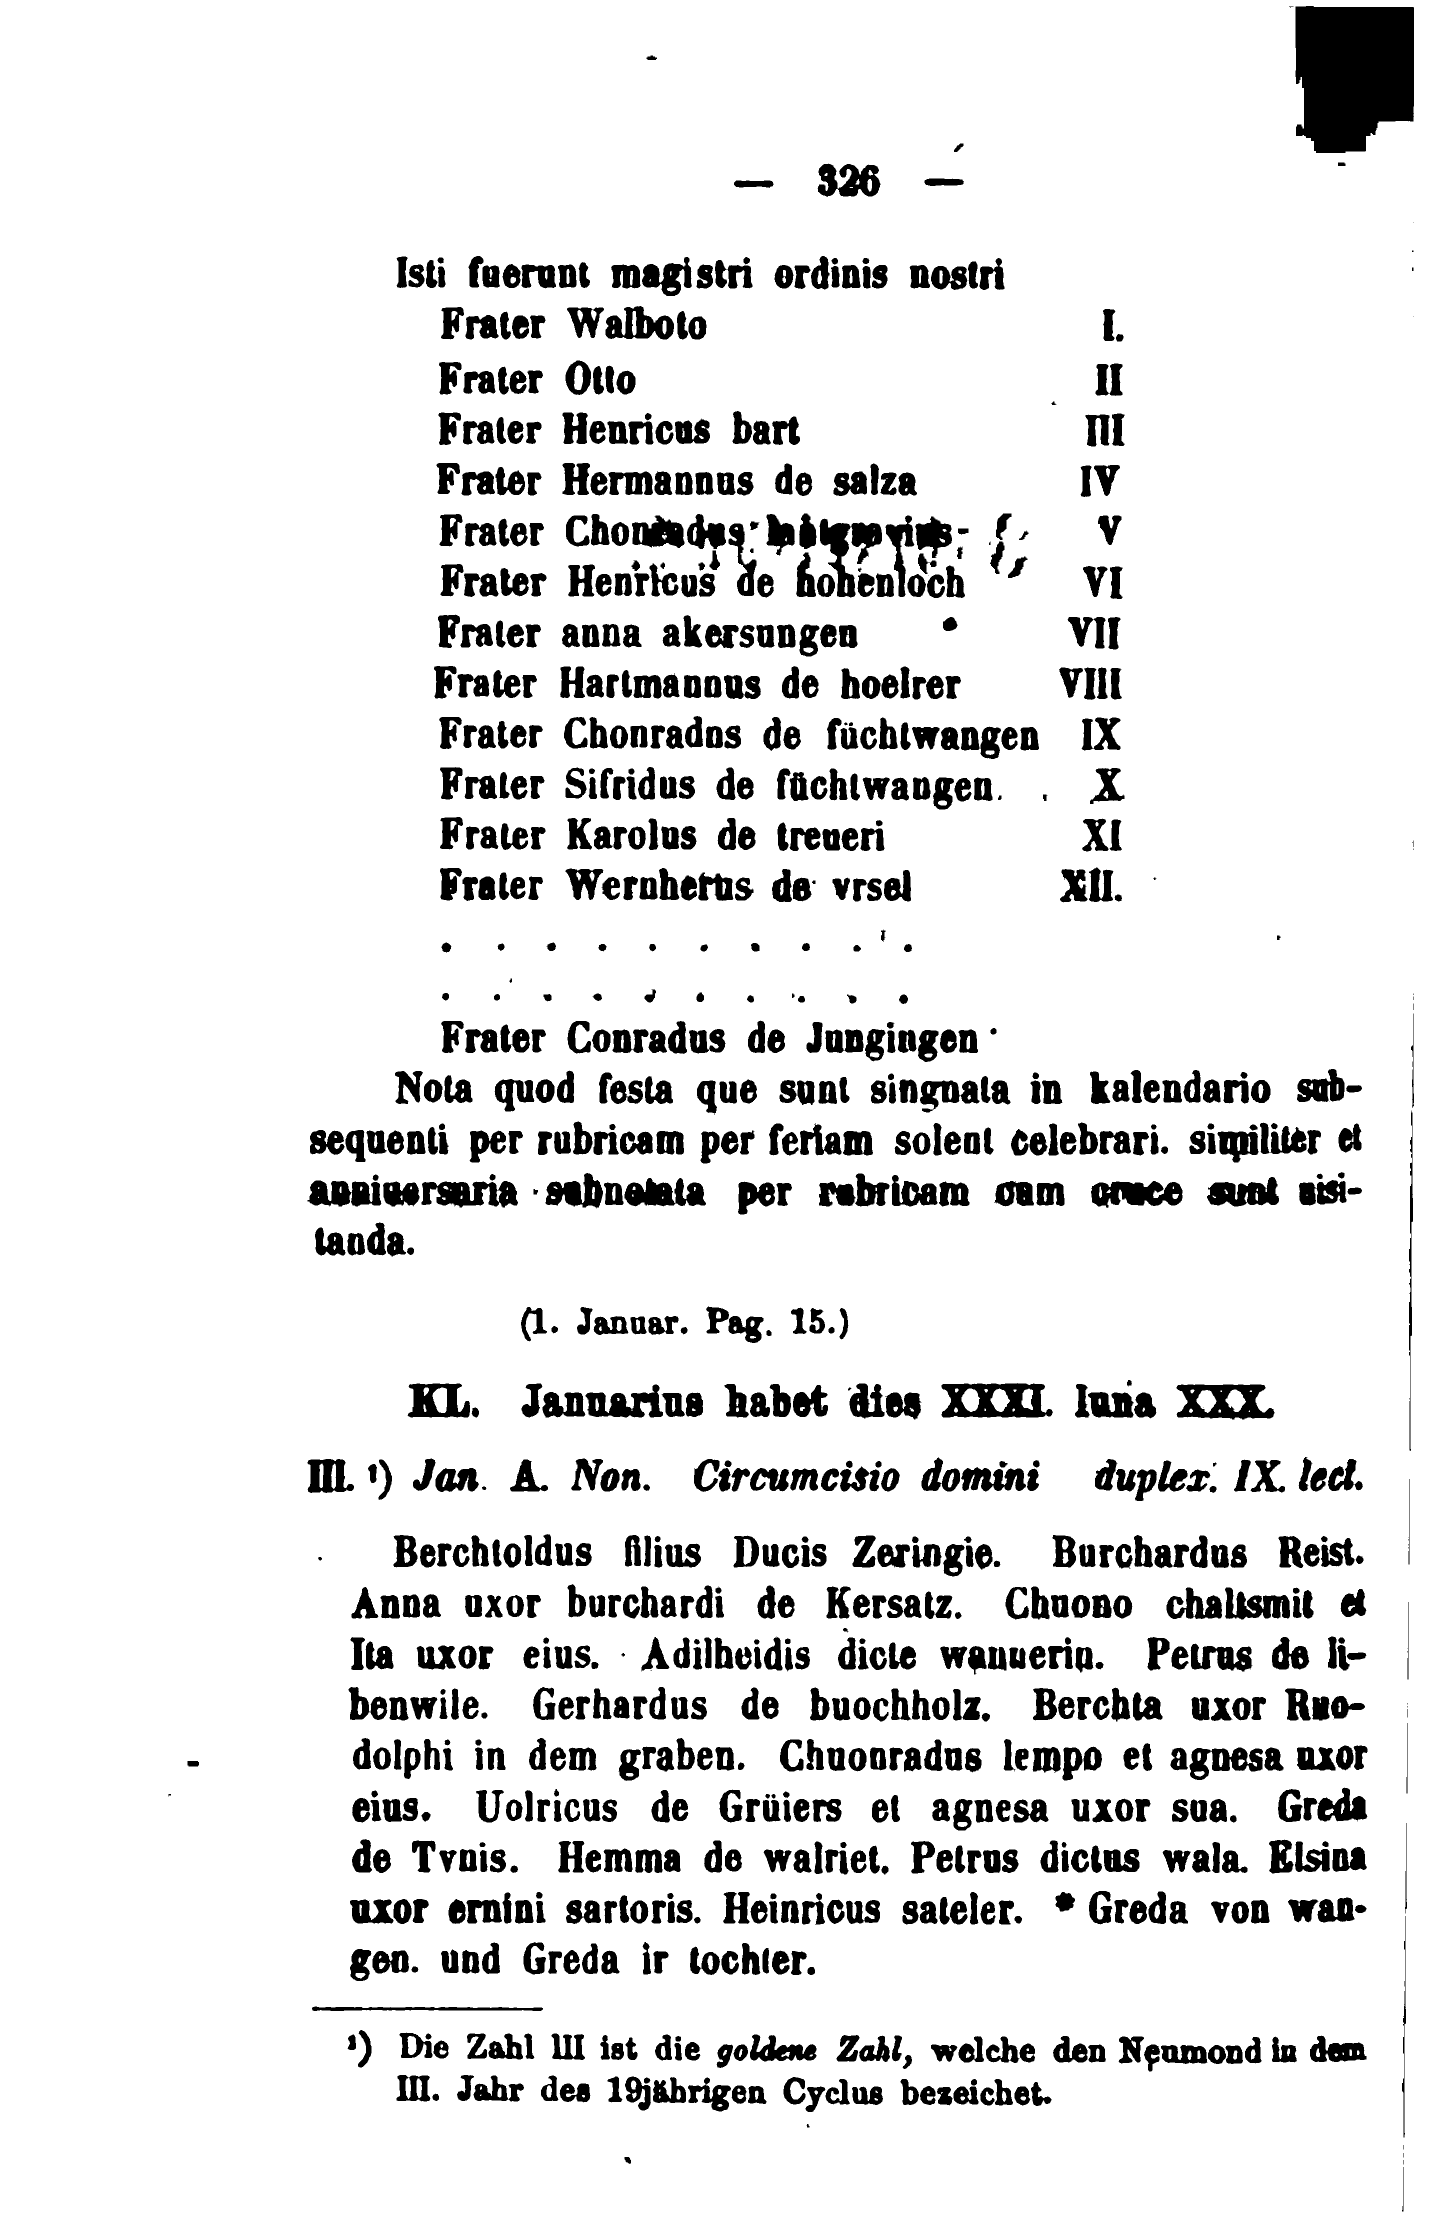 — 326 —
Isti fuerunt magistri ordinis nostri
Frater Walboto I.
Frater Otto II
Frater Henricus bart III
Frater Hermannus de salza IV
Frater Chonradus V
Frater Henricus de hohenloch VI
Frater anna akersungen VII
Frater Hartmannus de hoelrer VIII
Frater Chonradus de füchtwangen IX
Frater Sifridus de füchtwangen X
Frater Karolus de treueri XI
Frater Wernherus de vrsel XII.
. . . . . . . . . .
. . . . . . . . . .
Frater Conradus de Jungingen
Nota quod festa que sunt singnata in kalendario sub-
sequenti per rubricam per feriam solent celebrari. similiter et
anniuersaria subnotata per rubricam cum cruce sunt uisi-
tanda.
(1. Januar. Pag. 15.)
KL. Januarius habet dies XXXI. luna XXX.
III. ¹) Jan. A. Non. Circumcisio domini duplex. IX. lect.
Berchtoldus filius Ducis Zeringie. Burchardus Reist.
Anna uxor burchardi de Kersatz. Chuono chaltsmit et
Ita uxor eius. Adilheidis dicte wannerin. Petrus de li-
benwile. Gerhardus de buochholz. Berchta uxor Ruo-
dolphi in dem graben. Chuonradus lempo et agnesa uxor
eius. Uolricus de Grüiers et agnesa uxor sua. Greda
de Tvnis. Hemma de walriet. Petrus dictus wala. Elsina
uxor ernini sartoris. Heinricus sateler. * Greda von wan-
gen. und Greda ir tochter.
¹) Die Zahl III ist die goldene Zahl, welche den Neumond in dem
III. Jahr des 19jährigen Cyclus bezeichet.